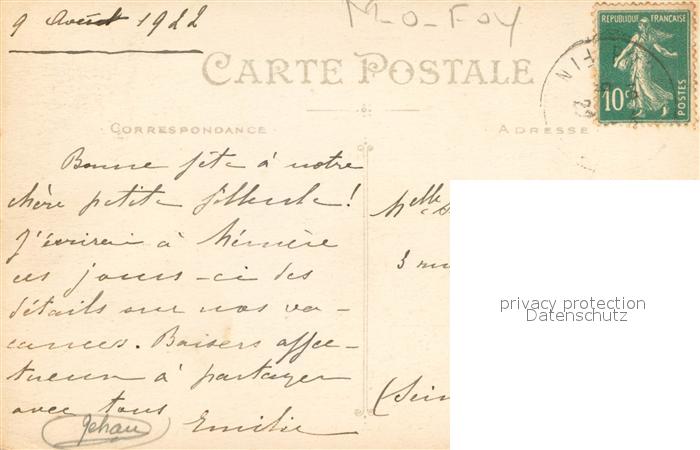 9 Août 1922
M-O-FOY
CARTE POSTALE
REPUBLIQUE FRANÇAISE
10c
POSTES
FIN
22
CORRESPONDANCE
ADRESSE
Bonne fête à notre
chère petite filleule!
J'écrirai à Mémère
ces jours-ci des
détails sur nos va-
cances. Baisers affec-
tueux à partager
avec tous
Emilie
Jehan
Melle
3 rue
(Sein
privacy protection
Datenschutz